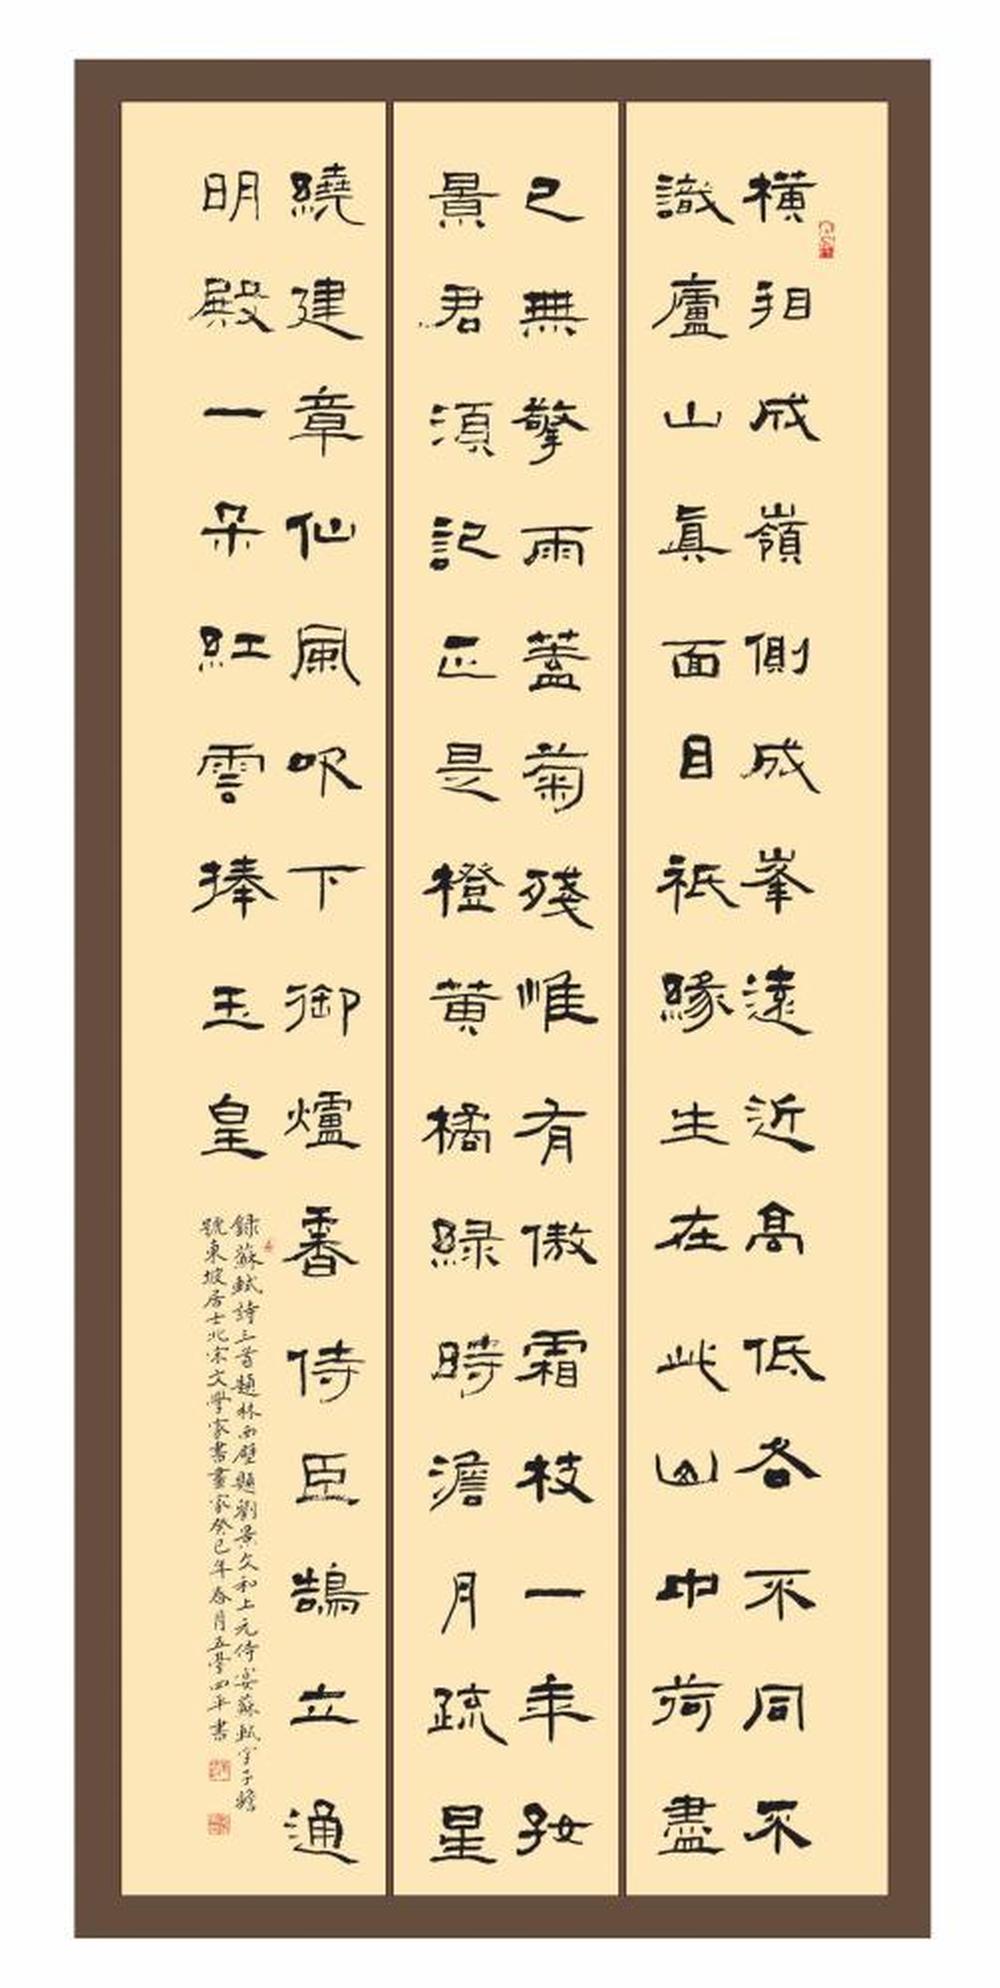 橫看成嶺側成峯遠近高低各不同不
識廬山真面目祇緣生在此山中荷盡
已無擎雨蓋菊殘惟有傲霜枝一年好
景君須記正是橙黃橘綠時澹月疏星
繞建章仙風吹下御爐香侍臣鵠立通
明殿一朵紅雲捧玉皇
録蘇軾詩三首題林西壁題劉景文和上元侍宴蘇軾字子瞻
號東坡居士北宋文學家書畫家癸巳年春月五四平書